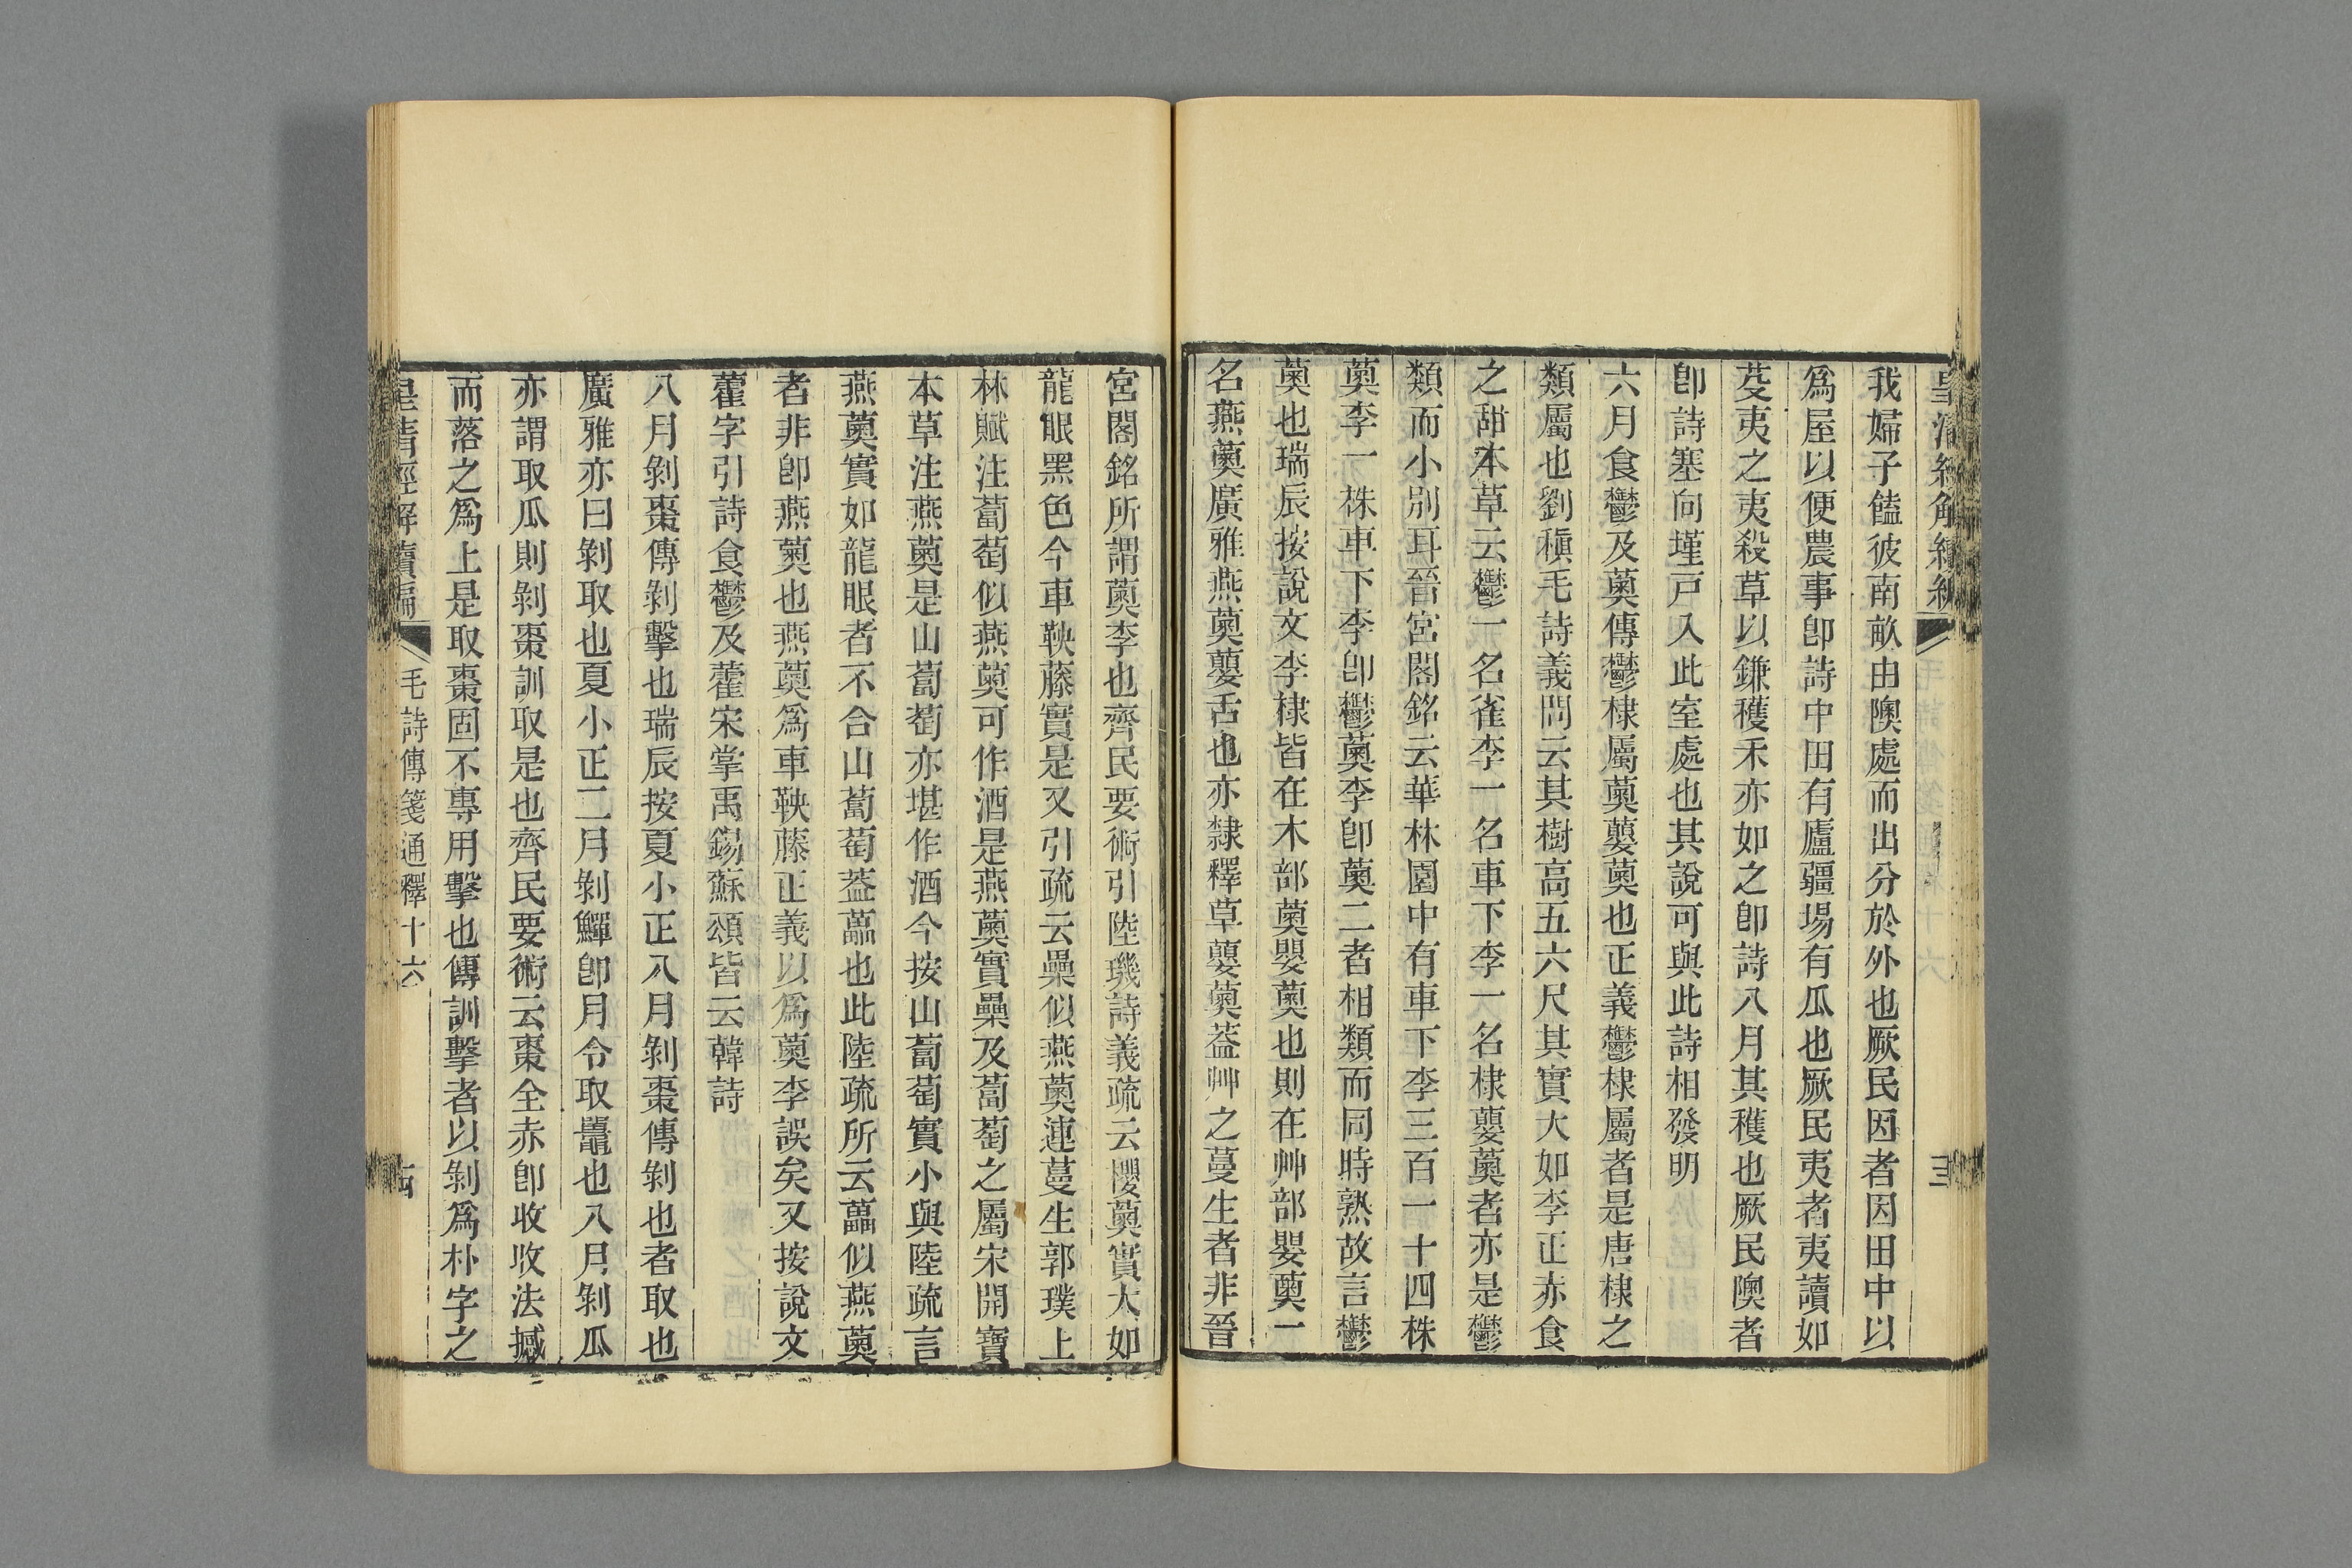 皇清經解續編
我婦子饁彼南畝由隩處而出分於外也厥民因者因田中以
爲屋以便農事卽詩中田有廬疆埸有瓜也厥民夷者夷讀如
芟夷之夷殺草以鎌穫禾亦如之卽詩八月其穫也厥民隩者
卽詩塞向墐戸入此室處也其說可與此詩相發明
六月食鬱及薁傳鬱棣屬薁蘡薁也正義鬱棣屬者是唐棣之
類屬也劉稹毛詩義問云其樹高五六尺其實大如李正赤食
之甜本草云鬱一名雀李一名車下李一名棣蘡薁者亦是鬱
類而小別耳晉宮閣銘云華林園中有車下李三百一十四株
薁李一株車下李卽鬱薁李卽薁二者相類而同時熟故言鬱
薁也瑞辰按說文李棣皆在木部薁嬰薁也則在艸部嬰薁一
名燕薁廣雅燕薁蘡舌也亦隸釋草蘡薁葢艸之蔓生者非晉
宮閣銘所謂薁李也齊民要術引陸璣詩義疏云櫻薁實大如
龍眼黑色今車鞅藤實是又引疏云虆似燕薁連蔓生郭璞上
林賦注蔔萄似燕薁可作酒是燕薁實虆及蔔萄之屬宋開寶
本草注燕薁是山蔔萄亦堪作酒今按山蔔萄實小與陸疏言
燕薁實如龍眼者不合山蔔萄葢藟也此陸疏所云藟似燕薁
者非卽燕薁也燕薁爲車鞅藤正義以爲薁李誤矣又按說文
藿字引詩食鬱及藿宋掌禹錫蘇頌皆云韓詩
八月剝棗傳剝擊也瑞辰按夏小正八月剝棗傳剝也者取也
廣雅亦曰剝取也夏小正二月剝鱓卽月令取鼉也八月剝瓜
亦謂取瓜則剝棗訓取是也齊民要術云棗全赤卽收收法撼
而落之爲上是取棗固不專用擊也傳訓擊者以剝爲朴字之
皇清經解續編 毛詩傳箋通釋十六